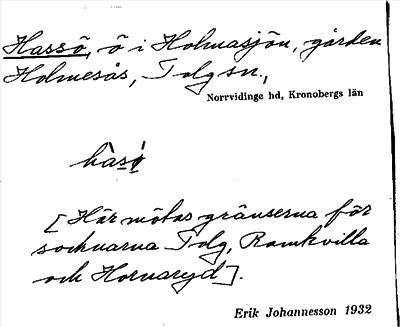 Hassö, ö i Holmasjön, gården
Holmesås, Tolg sn.,
Norrvidinge hd, Kronobergs län
[Här mötas gränserna för
socknarna Tolg, Ramkvilla
och Hornaryd].
Erik Johannesson 1932